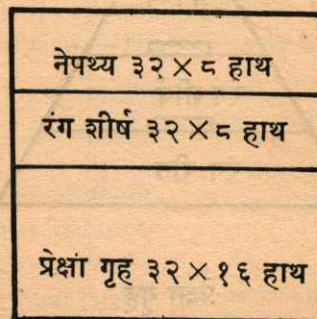 नेपथ्य ३२×८ हाथ
रंग शीर्ष ३२×८ हाथ
प्रेक्षां गृह ३२×१६ हाथ